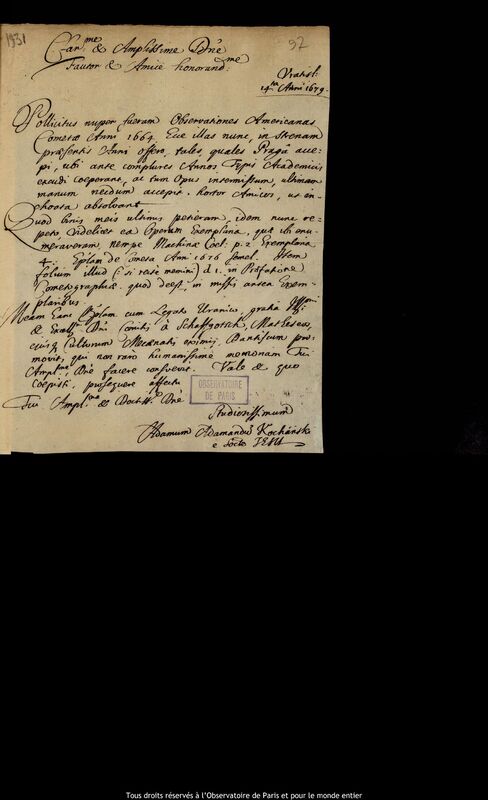 1931
92
Clar.me & Amplissime Dne
Fautor & Amice honorand.me
Vratisl.
14 Anni 1679.
Pollicitus nuper fueram Observationes Americanas
Cometæ Anni 1664. Ecce illas nunc, in strenam
præsentis Anni offero, tales, quales Pragâ acce-
pi, ubi ante complures Annos Typis Academicis
excudi coeperant, at tum Opus intermissum, ultimam
manum necdum accepit. Hortor Amicos, ut in-
choata absolvant.
Quod bris meis ultimis petieram, idem nunc re-
peto videlicet ea Operum Exemplaria, quæ ibi enu-
meraveram, nempe Machinæ Coel. p. 2 Exemplaria
4. Eplam de Cometa Anni 1676 semel. Item
folium illud (: si recte memini) d 1. in Præfatione
Cometographiæ quod deest, in missis antea Exem-
plaribus.
Meam hanc Eplam cum Legato Uranico, gratia Illmi
& Excell. Dni Comitis à Schaffgotsch, Matheseos,
ejusq Cultorum Mæcenatis eximij, Dantiscum pro-
movit, qui non raro humanissimè mentionem Tui
Ampl.me Dne facere consuevit. Vale & quo
coepisti, prosequere affectu
Tui Ampl. & Doctiss. Dne
OBSERVATOIRE
DE PARIS
Studiosissimum
Adamum Adamandu Kochański
e Socte JESU
Tous droits réservés à l'Observatoire de Paris et pour le monde entier